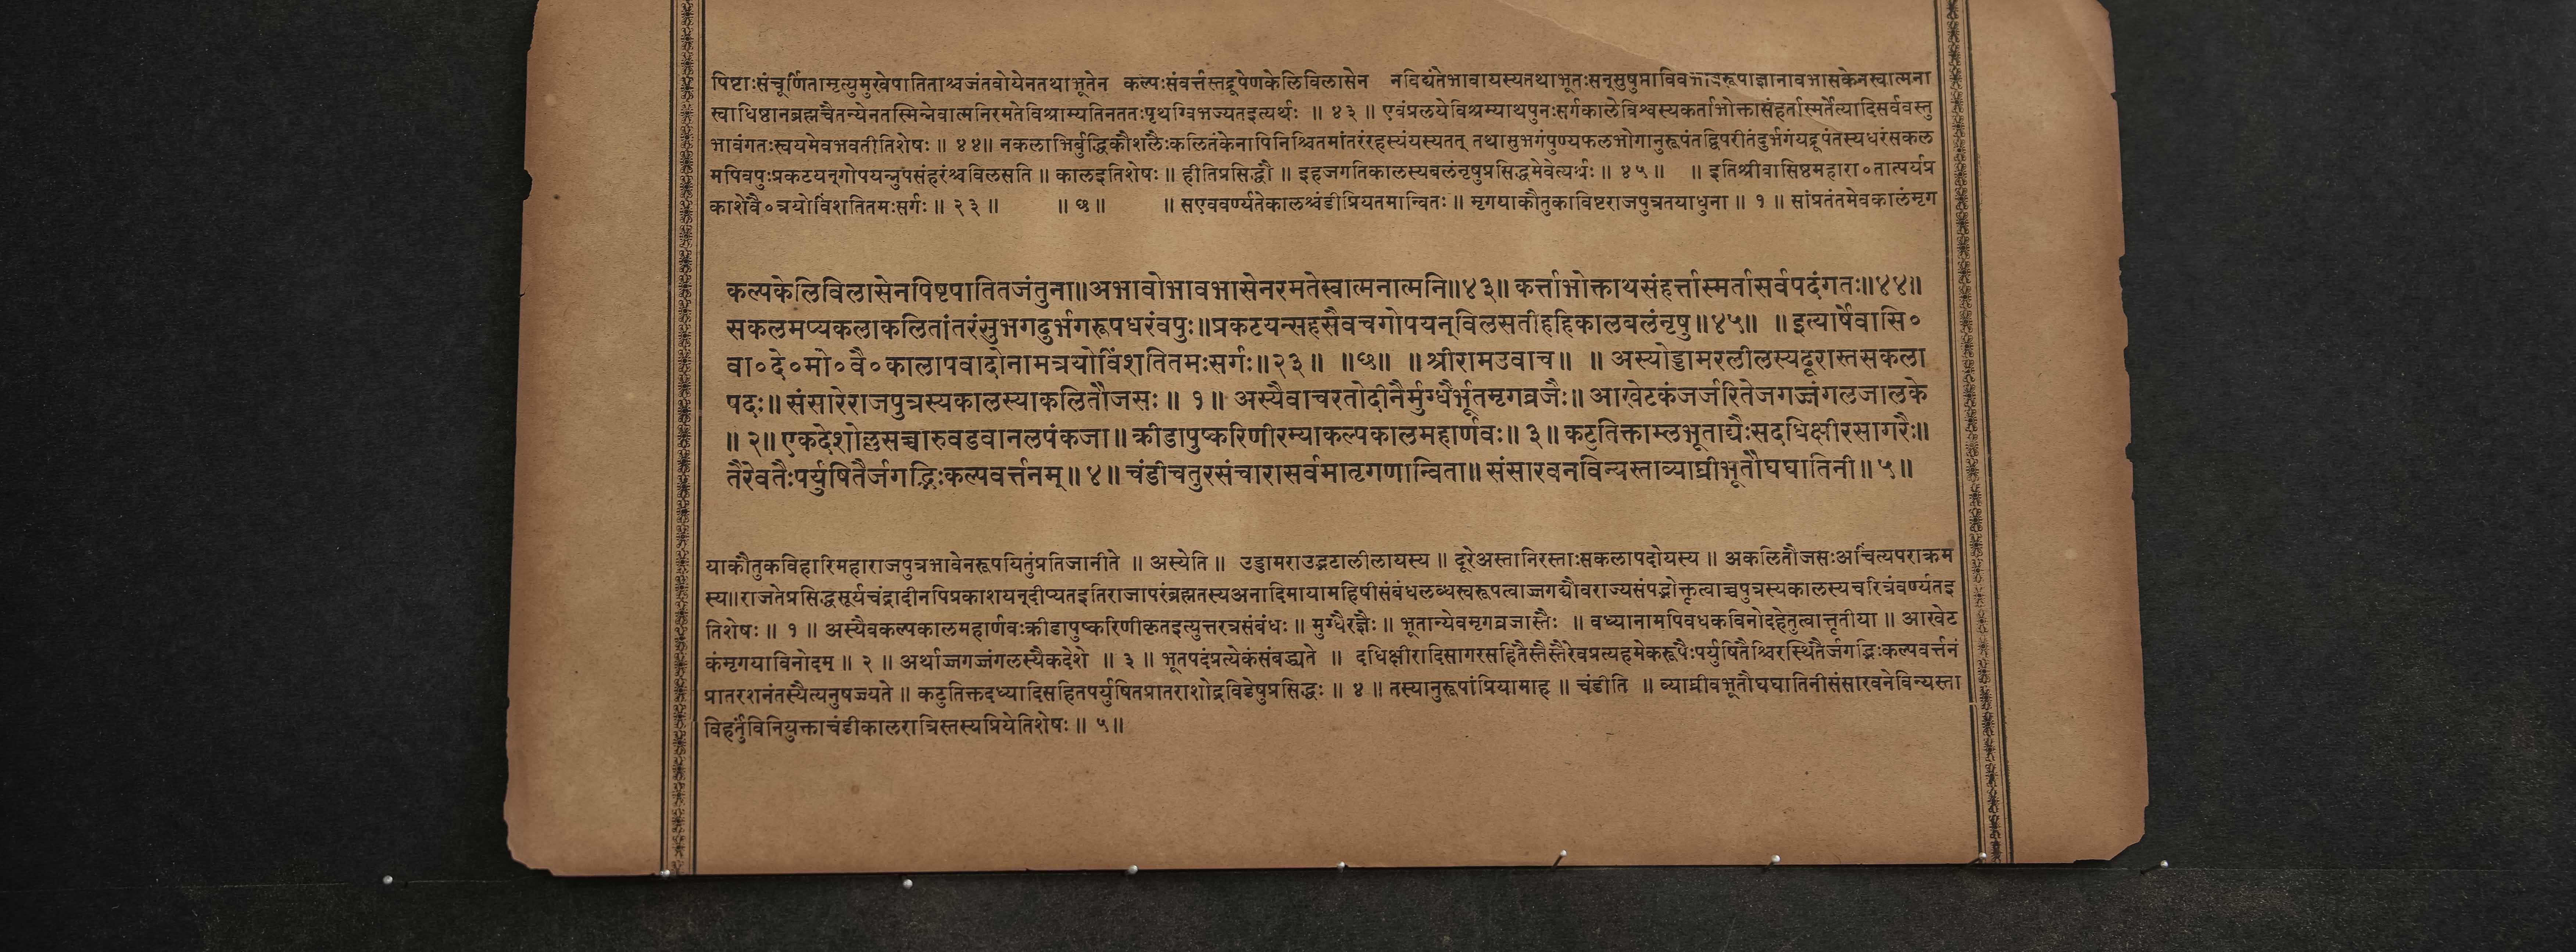 पिष्टाःसंचूर्णितामृत्युमुखेपातिताश्चजंतवोयेनतथाभूतेन कल्पःसंवर्त्तस्तद्रूपेणकेलिविलासेन नविद्यंतेभावायस्यतथाभूतःसन्सुषुप्ताविवभावरूपाज्ञानावभासकेनस्वात्मना
स्वाधिष्ठानब्रह्मचैतन्येनतस्मिन्नेवात्मनिरमतेविश्राम्यतिनततःपृथग्विभज्यतइत्यर्थः ॥ ४३ ॥ एवंप्रलयेविश्रम्याथपुनःसर्गकालेविश्वस्यकर्ताभोक्तासंहर्तास्मर्तेत्यादिसर्ववस्तु
भावंगतःस्वयमेवभवतीतिशेषः ॥ ४४॥ नकलाभिर्बुद्धिकौशलैःकलितंकेनापिनिश्चितमांतरंरहस्यंयस्यतत् तथासुभगंपुण्यफलभोगानुरूपंतद्विपरीतंदुर्भगंयद्रूपंतस्यधरंसकल
मपिवपुःप्रकटयन्गोपयन्नुपसंहरंश्चविलसति ॥ कालइतिशेषः ॥ हीतिप्रसिद्धौ ॥ इहजगतिकालस्यबलंनृषुप्रसिद्धमेवेत्यर्थः ॥ ४५ ॥ ॥ इतिश्रीवासिष्ठमहारा०तात्पर्यप्र
काशेवै०त्रयोविंशतितमःसर्गः ॥ २३ ॥ ॥ छ ॥ ॥ सएववर्ण्यतेकालश्चंडीप्रियतमान्वितः ॥ मृगयाकौतुकाविष्टराजपुत्रतयाधुना ॥ १ ॥ सांप्रतंतमेवकालंमृग
कल्पकेलिविलासेनपिष्टपातितजंतुना॥अभावोभावभासेनरमतेस्वात्मनात्मनि॥४३॥ कर्त्ताभोक्ताथसंहर्त्तास्मर्तासर्वपदंगतः॥४४॥
सकलमप्यकलाकलितांतरंसुभगदुर्भगरूपधरंवपुः॥प्रकटयन्सहसैवचगोपयन्विलसतीहहिकालबलंनृषु॥४५॥ ॥ इत्यार्षेवासि०
वा०दे०मो०वै०कालापवादोनामत्रयोविंशतितमःसर्गः॥२३॥ ॥छ॥ ॥ श्रीरामउवाच॥ ॥ अस्योड्डामरलीलस्यदूरास्तसकला
पदः॥ संसारेराजपुत्रस्यकालस्याकलितौजसः ॥ १॥ अस्यैवाचरतोदीनैर्मुग्धैर्भूतमृगव्रजैः॥ आखेटकंजर्जरितेजगज्जंगलजालके
॥ २॥ एकदेशोल्लसच्चारुवडवानलपंकजा॥ क्रीडापुष्करिणीरम्याकल्पकालमहार्णवः॥ ३॥ कटुतिक्ताम्लभूताद्यैःसदधिक्षीरसागरैः॥
तैरेवतैःपर्युषितैर्जगद्भिःकल्पवर्त्तनम्॥ ४॥ चंडीचतुरसंचारासर्वमातृगणान्विता॥ संसारवनविन्यस्ताव्याघ्रीभूतौघघातिनी॥ ५॥
याकौतुकविहारिमहाराजपुत्रभावेनरूपयितुंप्रतिजानीते ॥ अस्येति ॥ उड्डामराउद्भटालीलायस्य ॥ दूरेअस्तानिरस्ताःसकलापदोयस्य ॥ अकलितौजसःअचिंत्यपराक्रम
स्य॥राजतेप्रसिद्धसूर्यचंद्रादीनपिप्रकाशयन्दीप्यतइतिराजापरंब्रह्मतस्यअनादिमायामहिषीसंबंधलब्धस्वरूपत्वाज्जगद्यौवराज्यसंपद्भोक्तृत्वाच्चपुत्रस्यकालस्यचरित्रंवर्ण्यतइ
तिशेषः ॥ १ ॥ अस्यैवकल्पकालमहार्णवःक्रीडापुष्करिणीकृतइत्युत्तरत्रसंबंधः ॥ मुग्धैरज्ञैः ॥ भूतान्येवमृगव्रजास्तैः ॥ वध्यानामपिवधकविनोदहेतुत्वात्तृतीया ॥ आखेट
कंमृगयाविनोदम् ॥ २ ॥ अर्थाज्जगज्जंगलस्यैकदेशे ॥ ३ ॥ भूतपदंप्रत्येकंसंबद्ध्यते ॥ दधिक्षीरादिसागरसहितैस्तैस्तैरेवप्रत्यहमेकरूपैःपर्युषितैश्चिरस्थितैर्जगद्भिःकल्पवर्त्तनं
प्रातरशनंतस्यैत्यनुषज्ज्यते ॥ कटुतिक्तदध्यादिसहितपर्युषितप्रातराशोद्रविडेषुप्रसिद्धः ॥ ४ ॥ तस्यानुरूपांप्रियामाह ॥ चंडीति ॥ व्याघ्रीवभूतौघघातिनीसंसारवनेविन्यस्ता
विहर्तुंविनियुक्ताचंडीकालरात्रिस्तस्यप्रियेतिशेषः ॥ ५॥